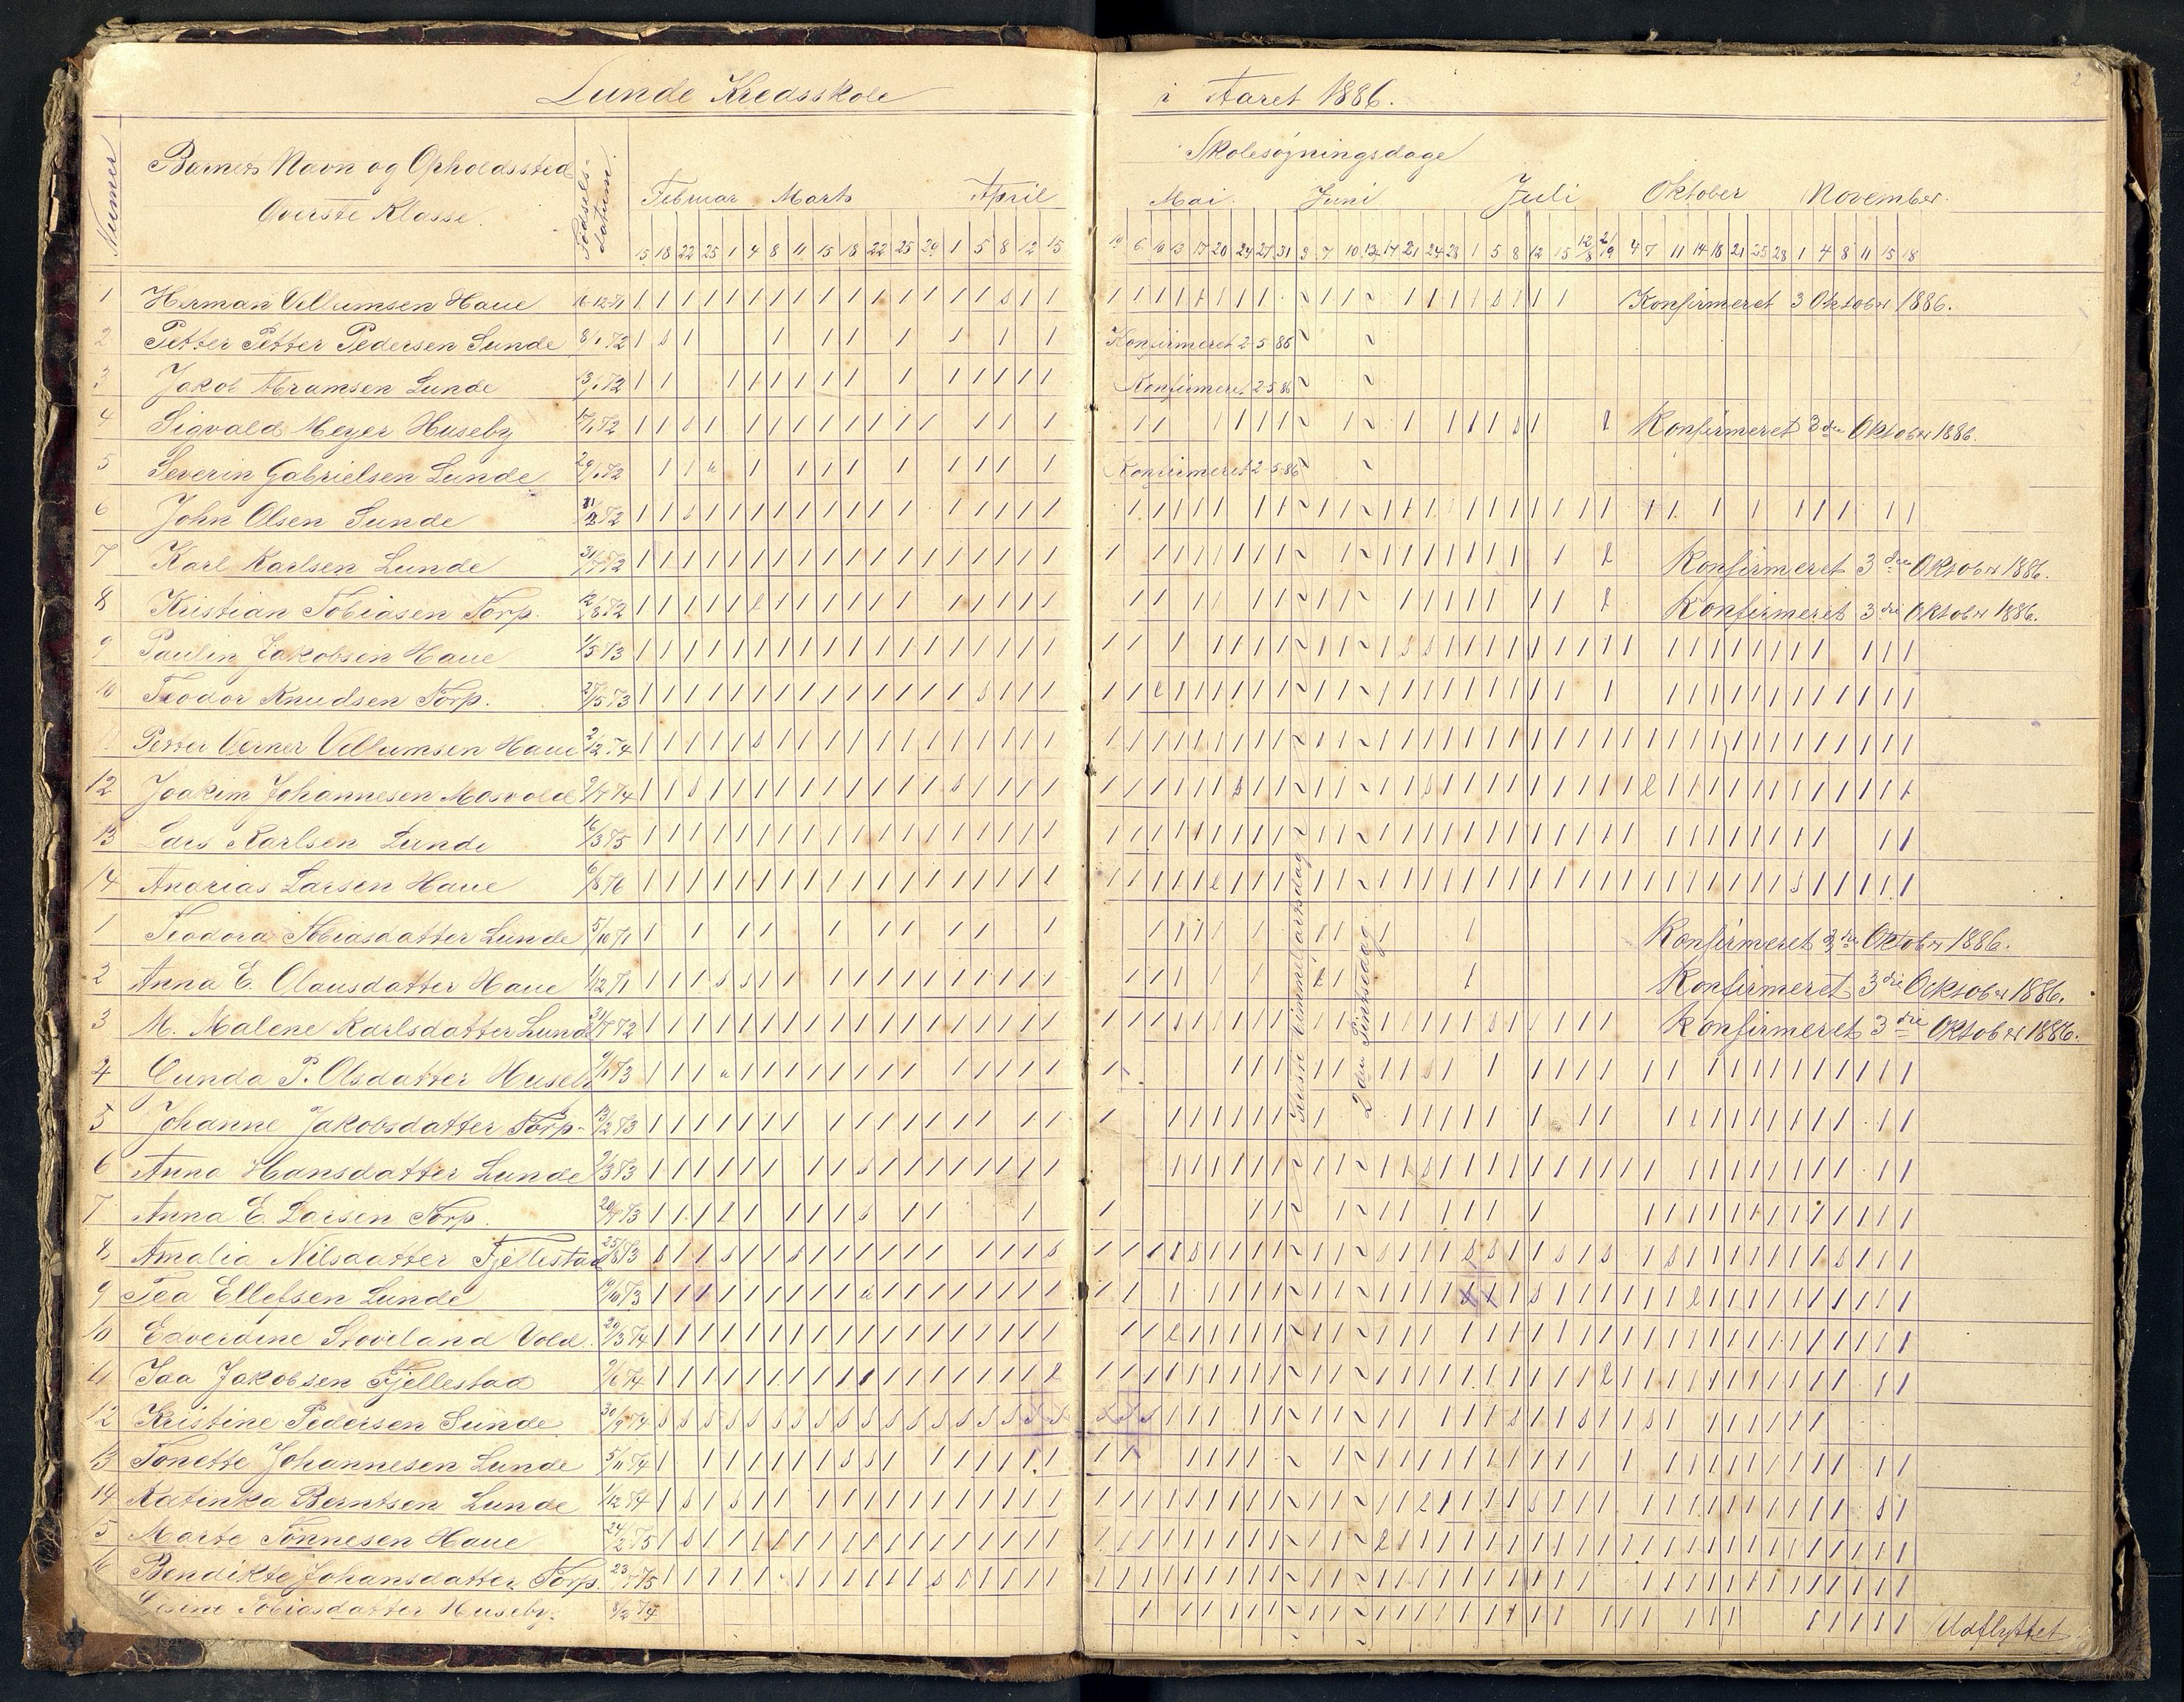 Lunde Kredsskole i Aaret 1886.
Numer
Barnets Navn og Opholdssted
Överste Klasse.
Födsels-
datum.
Skolesøgningsdage
Februar Marts April Mai. Juni Juli Oktober November.
15 18 22 25 1 4 8 11 15 18 22 25 29 1 5 8 12 15
6 10 13 17 20 24 27 31 3 7 10 13 17 21 24 28 1 5 8 12 15 12/8 2/9 4 7 11 14 18 21 25 28 1 4 8 11 15 18
1 Herman Vellumsen Haue 16-12-71 Konfirmeret 3 Oktober 1886.
2 Petter Petter Pedersen Lunde 8/1 72 Konfirmeret 2-5-86
3 Jakob Abramsen Lunde 13/1 72 Konfirmeret 2-5-86
4 Sigvald Meyer Huseby 17/1 72 Konfirmeret 3die Oktober 1886.
5 Severin Gabrielsen Lunde 29/1 72 Konfirmeret 2-5-86
6 John Olsen Lunde 72
7 Karl Karlsen Lunde 31/7 72 Konfirmeret 3die Oktober 1886.
8 Kristian Tobiasen Torp. 12/8 72 Konfirmeret 3die Oktober 1886.
9 Paulin Jakobsen Haue 1/5 73
10 Teodor Knudsen Torp. 27/5 73
11 Petter Verner Vellumsen Haue 2/12 74
12 Joakim Johannesen Mosvold 2/7 74
13 Lars Karlsen Lunde 16/3 75
14 Andrias Larsen Haue 6/8 76
1 Teodora Tobiasdatter Lunde 5/10 71 Konfirmeret 3die Oktober 1886.
2 Anna E. Olausdatter Haue 1/12 71 Konfirmeret 3die Ocktober 1886.
3 M. Malene Karlsdatter Lunde 31/7 72 Konfirmeret 3die Oktober 1886.
4 Gunda P. Olsdatter Huseby 9/1 73
5 Johanne Jakobsdatter Torp- 13/2 73
6 Anna Hansdatter Lunde 9/3 73
7 Anna E. Larsen Torp. 20/7 73
8 Amalia Nilsdatter Fjellestad 25/8 73
9 Tea Ellefsen Lunde 19/10 73
10 Enverdine Stoveland Vold. 29/3 74
11 Ida Jakobsen Fjellestad 9/6 74
12 Kristine Pedersen Lunde. 30/9 74
13 Tonette Johannesen Lunde 5/11 74
14 Katinka Berntsen Lunde 1/12 74
15 Marte Tønnesen Haue 24/2 75
16 Bendikte Johansdatter Torp. 23/7 75
Gesine Tobiasdatter Huseby. 8/2 74 Udflyttet
Første Himmelfartsdag
2den Pintsedag